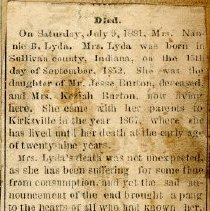 Died.
On Saturday, July 9, 1881, Mrs. Nan-
nie B. Lyda. Mrs. Lyda was born in
Sullivan county, Indiana, on the 15th
day of September, 1852. She was the
daughter of Mr. Jesse Burton, deceased,
and Mrs. Keziah Burton, now living
here. She came with her parents to
Kirksville in the year 1867, where she
has lived until her death at the early age
of twenty-nine years.
Mrs. Lyda's death was not unexpected,
as she has been suffering for some time
from consumption, and yet the sad an-
nouncement of the end brought a pang
to the hearts of all who had known her.